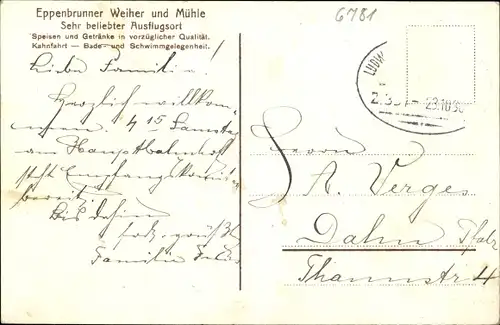 Eppenbrunner Weiher und Mühle
Sehr beliebter Ausflugsort
Speisen und Getränke in vorzüglicher Qualität.
Kahnfahrt — Bade- und Schwimmgelegenheit.
6781
LUDW
23.10.36
Liebe Familie!
Herzlich willkom-
men. 4 15 Samstag
am Hauptbahnhof
steht Empfangskomitee
bereit.
Bis dahin
herzl. grüßt
Familie
Herrn
A. Verges
Dahn Pfalz
Thannstr 4